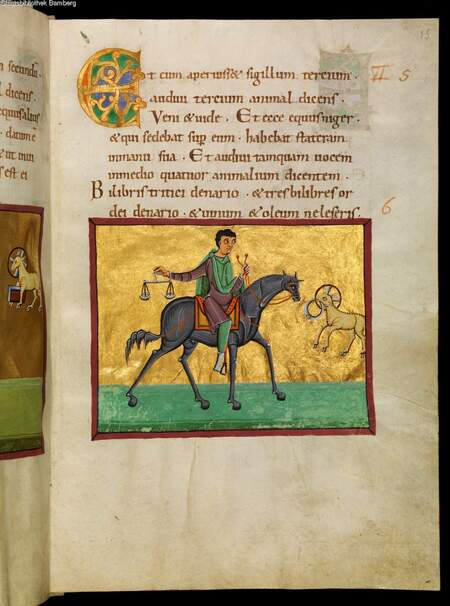 Staatsbibliothek Bamberg
15
Et cum aperuisset sigillum tercium ·
audivi tercium animal dicens ·
Veni & vide · Et ecce equus niger ·
& qui sedebat sup eum · habebat stateram
in manu sua · Et audivi tamquam vocem
in medio quatuor animalium dicentem ·
Bilibris tritici denario · & tres bilibres or
dei denario · & vinum & oleum ne leseris ·
VI 5
6
secundū
dicens ·
equus alius
est ei